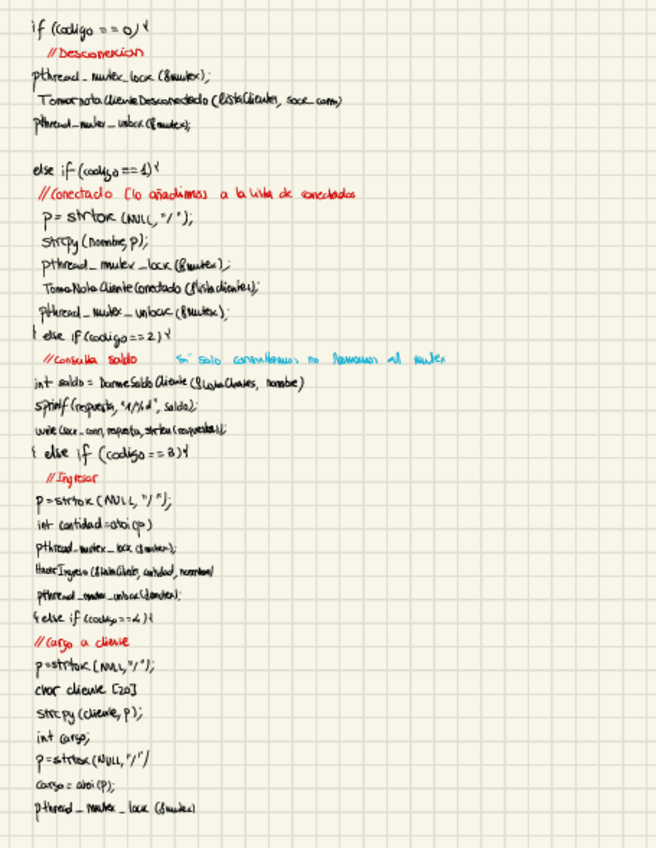 if (codigo == 0){
//Desconexion
pthread_mutex_lock (&mutex);
TomarnotaClienteDesconectado (listaClientes, sock_conn)
pthread_mutex_unlock (&mutex);
else if (codigo == 1){
//Conectado (lo añadimos) a la lista de conectados
p = strtok (NULL, "/");
strcpy (nombre, p);
pthread_mutex_lock (&mutex);
TomaNotaClienteConectado (&listaclientes);
pthread_mutex_unlock (&mutex);
} else if (codigo == 2){
//Consulta saldo si solo consultamos no llamamos al mutex
int saldo = DarmeSaldoCliente (&ListaClientes, nombre)
sprintf (respuesta, "1/%d", saldo);
write (sock_conn, respuesta, strlen (respuesta));
} else if (codigo == 3){
//Ingresar
p = strtok (NULL, "/");
int cantidad = atoi (p)
pthread_mutex_lock (&mutex);
HacerIngreso (&listaClientes, cantidad, nombre)
pthread_mutex_unlock (&mutex);
} else if (codigo == 4){
//Cargo a cliente
p = strtok (NULL, "/");
char cliente [20]
strcpy (cliente, p);
int cargo;
p = strtok (NULL, "/")
cargo = atoi (p);
pthread_mutex_lock (&mutex)